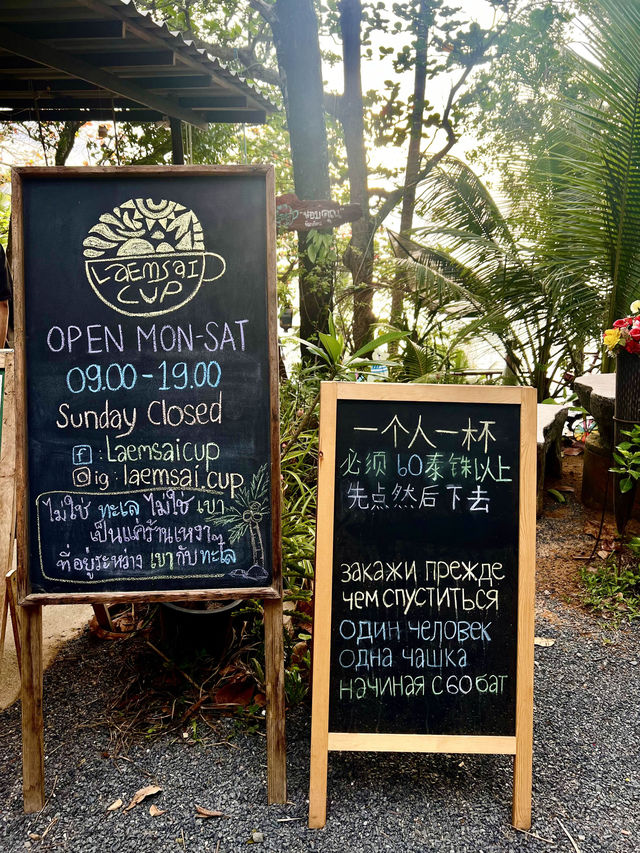 LAEMSAI
CUP
OPEN MON-SAT
09.00-19.00
Sunday Closed
f : Laemsaicup
ig : laemsai.cup
ไม่ใช่ ทะเล ไม่ใช่ เขา
เป็นแค่ร้านเหงาๆ
ที่อยู่ระหว่าง เขากับทะเล
一个人一杯
必须 60泰铢以上
先点然后下去
закажи прежде
чем спуститься
один человек
одна чашка
начиная с 60 бат